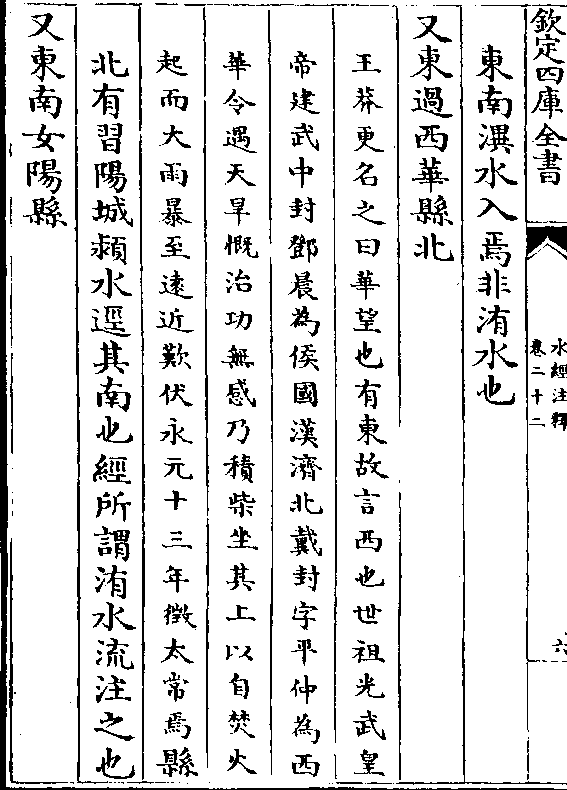 欽定四庫全書
水經注釋
卷二十二
六
東南潩水入焉非洧水也
又東過西華縣北
王莽更名之曰華望也有東故言西也世祖光武皇
帝建武中封鄧晨為侯國漢濟北戴封字平仲為西
華令遇天旱慨治功無感乃積柴坐其上以自焚火
起而大雨暴至遠近歎伏永元十三年徴太常焉縣
北有習陽城潁水逕其南也經所謂洧水流注之也
又東南女陽縣